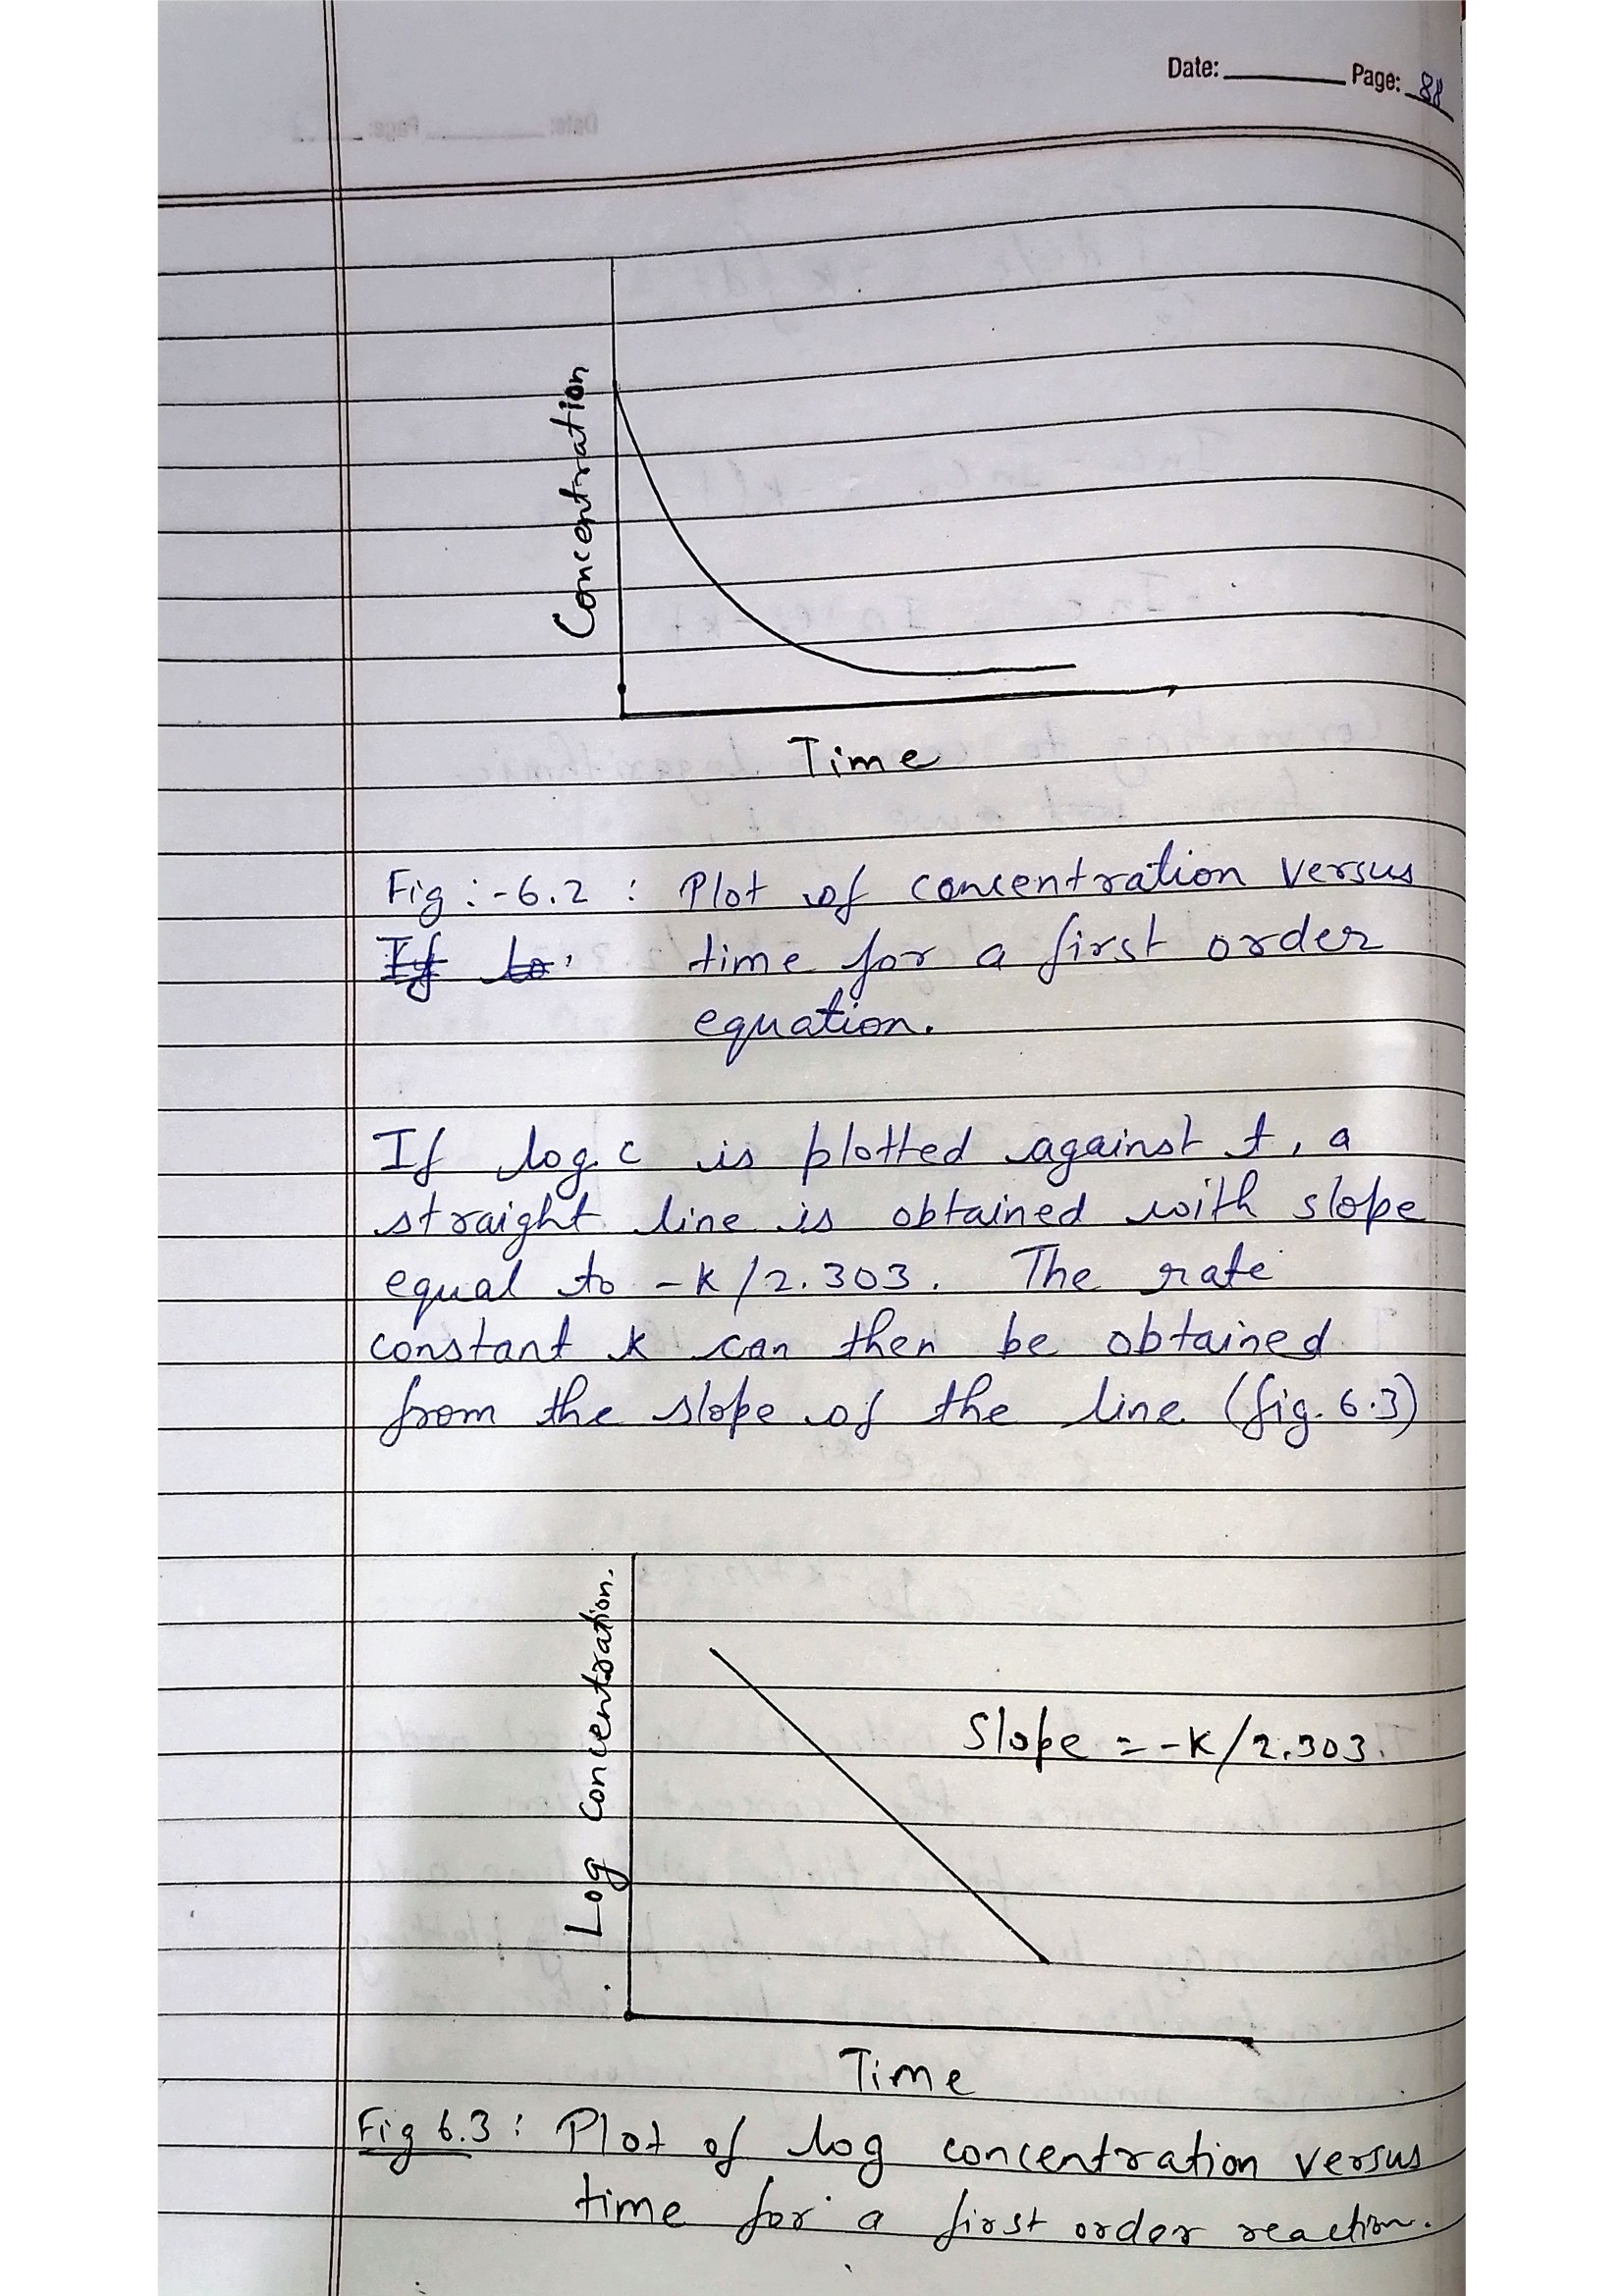 Date: Page: 88
Concentration
Time
Fig :- 6.2 : Plot of concentration versus
time for a first order
equation.
If log c is plotted against t, a
straight line is obtained with slope
equal to -K/2.303. The rate
constant k can then be obtained
from the slope of the line (fig. 6.3)
Log Concentration.
Slope = -K/2.303.
Time
Fig 6.3 : Plot of log concentration versus
time for a first order reaction.